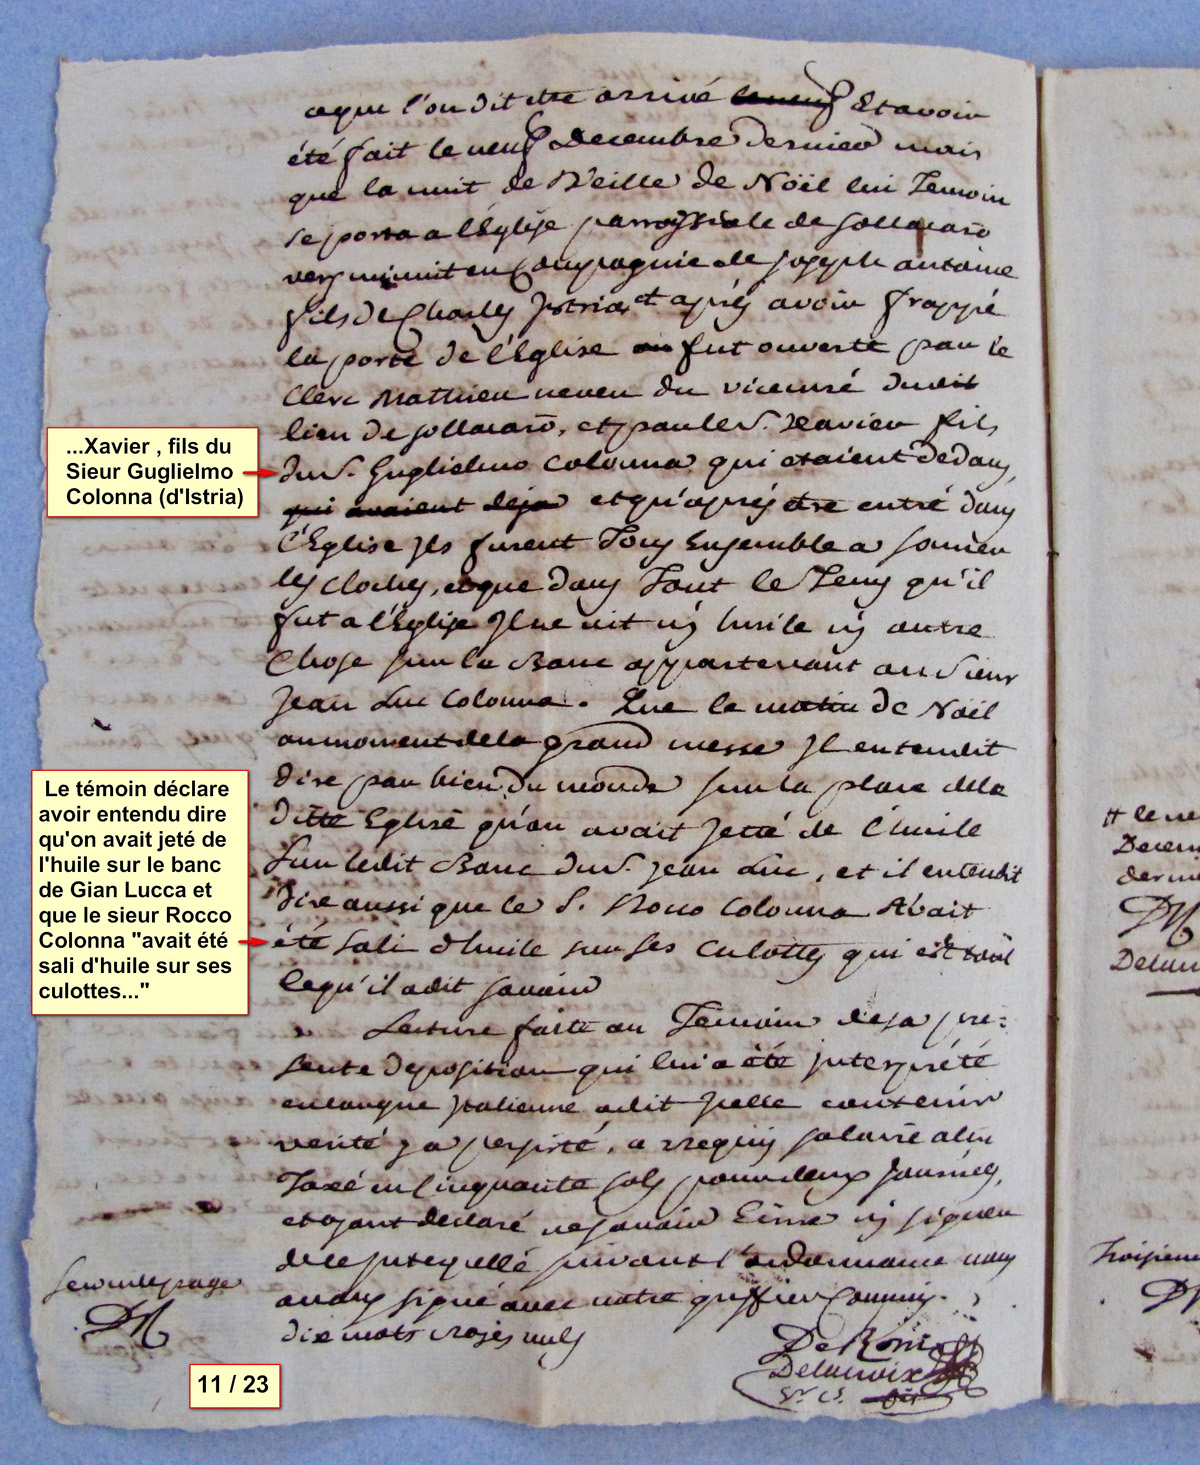 ceque l'on dit être arrivé le neuf Et avoir
été fait le neuf Decembre dernier mais
que la nuit de Veille de Noël lui Temoin
se porta a l'Eglise parroissiale de Sollacarò
vers minuit en Compagnie de joseph antoine
fils de Charles Jstria et aprés avoir frappé
la porte de l'Eglise on fut ouverte par le
Clerc Mathieu neveu du vicecuré dudit
lieu de sollacarò, et par le S.r Xavier fils
...Xavier , fils du
Sieur Guglielmo
Colonna (d'Istria)
du S.r Guglielmo Colonna qui etaient dedans,
qui avaient deja et qu'aprés être entré dans
l'Eglise Jls furent Tous Ensemble a sonner
les cloches, et que dans Tout le Tems qu'il
fut a l'Eglise Jl ne vit ny huile ny autre
Chose sur le Banc appartenant au Sieur
Jean Luc Colonna. Que le matin de Noël
au moment de la grand messe Jl entendit
dire par bien du monde sur la place de la
ditte Eglise qu'on avait Jetté de l'huile
sur ledit Banc du S.r Jean Luc, et il entendit
dire aussi que le S. Rocco Colonna Avait
été sali d'huile sur ses culottes qui est tout
cequ'il a dit savoir
Le témoin déclare
avoir entendu dire
qu'on avait jeté de
l'huile sur le banc
de Gian Lucca et
que le sieur Rocco
Colonna "avait été
sali d'huile sur ses
culottes..."
Lecture faite au Temoin de sa pre=
sente deposition qui lui a été jnterprété
en langue jtalienne a dit jcelle contenir
verité y a persisté, a requis salaire a lui
Taxé en Cinquante sols pour deux journées,
et ayant declaré ne savoir Ecrire ny signer
de ce jnterpellé suivant l'ordonnance nous
avons signé avec notre greffier Commis.
dix mots rayés nuls
Seconde page
DR
De Roni
Delacroix
11 / 23
# le ne
Decem
dernie
DR
Delacr
Troisieme
DR